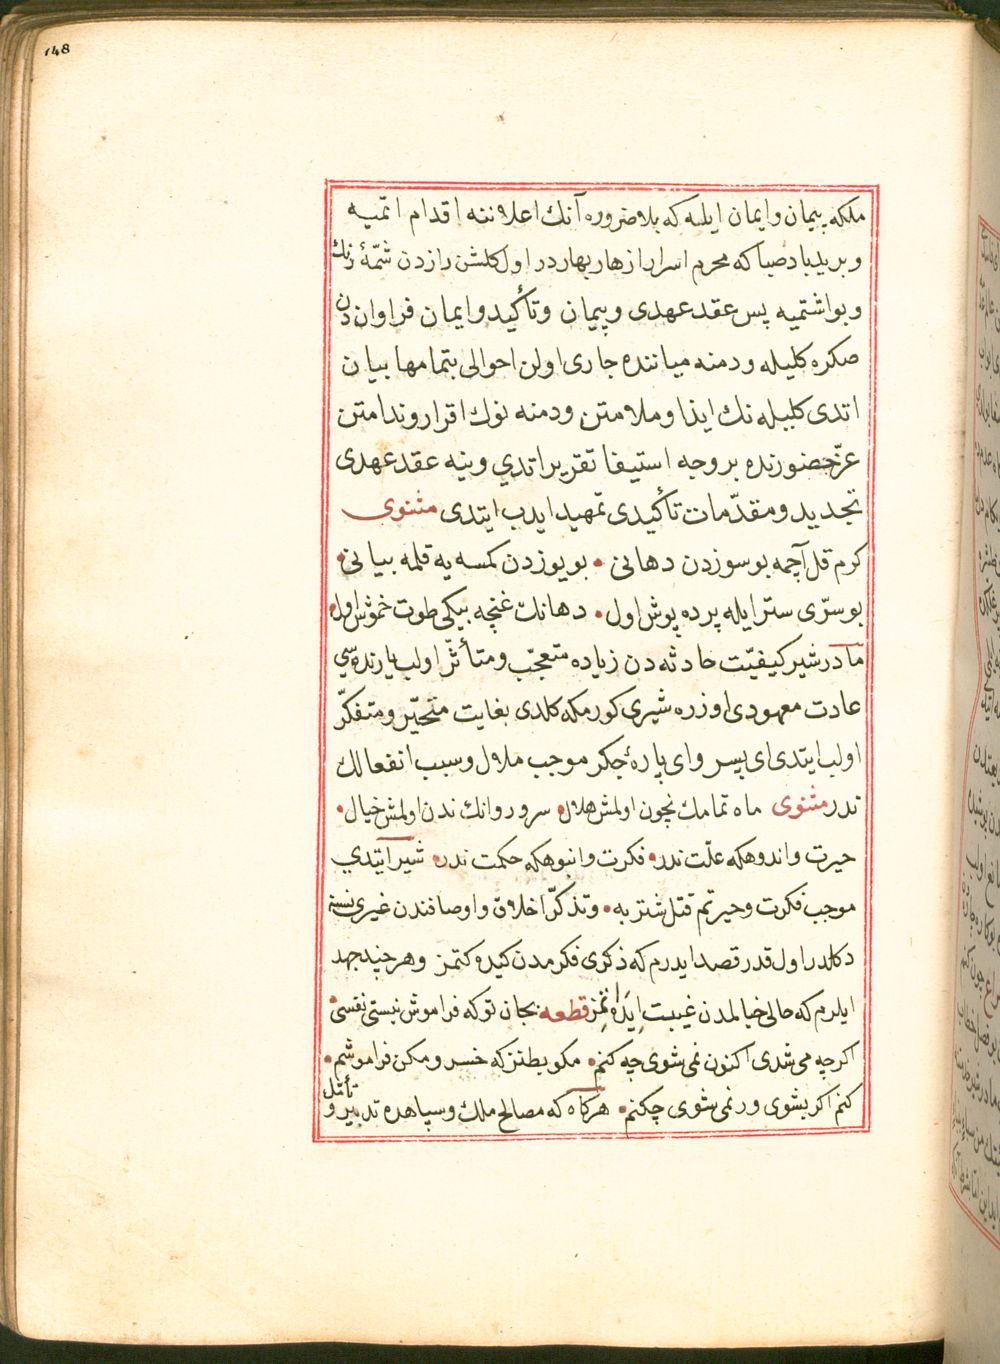 148
ملكه پیمان وایمان ایله كه بلاضروره آنك اعلاننه اقدام اتمیه
وبرید باد صبا كه محرم اسرار ازهار بهاردر اول كلشن رازدن شمّهٔ رنك
وبو اشتمیه پس عقد عهدی وپیمان وتأكید وایمان فراواندن
صكره كلیله ودمنه میاننده جاری اولن احوالی بتمامها بیان
اتدی كلیله نك ایذا وملامتن ودمنه نوك اقرار وندامتن
عزّ حضورنده بر وجه استیفا تقریر اتدي وینه عقد عهدی
تجدید ومقدّمات تأكیدی تمهید ایدب ایتدی مثنوی
كرم قل آچمه بو سوزدن دهانی • بو یوزدن كمسه یه قلمه بیانی •
بو سرّی ستر ایله پرده پوش اول • دهانك غنچه بیكی طوت خموش اول •
مادر شیر كیفیّت حادثه دن زیاده متعجّب ومتأثّر اولب یارنده سی
عادت معهودی اوزره شیری كورمكه كلدی بغایت متحیّر ومتفكّر
اولب ایتدی ای پسر وای پارهٔ جكر موجب ملال وسبب انفعالك
ندر مثنوی ماه تمامك نچون اولمش هلال • سرو روانك ندن اولمش خیال •
حیرت واندوهكه علّت ندر • فكرت وانبوهكه حكمت ندر • شیر ایتدي
موجب فكرت وحیرتم قتل شتربه • وتذكّر اخلاق واوصافندن غیری نسنه
دكلدر اول قدر قصد ایدرم كه ذكری فكرمدن كیده كتمز وهر چند جهد
ایلرم كه حالی خیالمدن غیبت ایده اتمز قطعه بجان تو كه فراموش نیستی نفسی •
اكرچه می شدی اكنون نمی شوی چه كنم • مكو بطنز كه خسرو مكن فراموشم •
كنم اكر بشوی ور نمی شوی چكنم • هركاه كه مصالح ملك وسپاهده تدبیر و
تأمّل